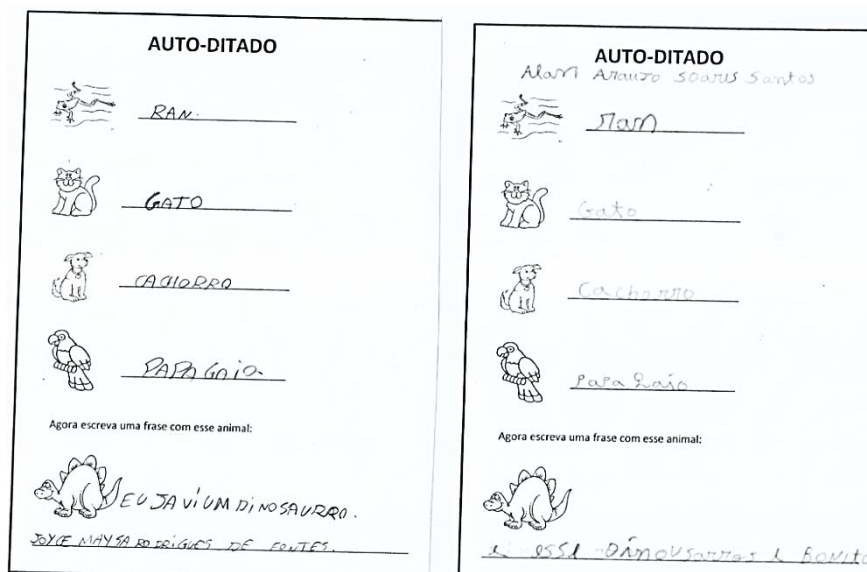 AUTO-DITADO
RAN.
GATO
CACHORRO
PAPAGAIO.
Agora escreva uma frase com esse animal:
EU JA VI UM DINOSAURRO.
JOYCE MAYSA RODRIGUES DE FONTES.
AUTO-DITADO
Alan Araujo Soares Santos
ran
Gato
Cachorro
Papagaio
Agora escreva uma frase com esse animal:
e esse e BONITO